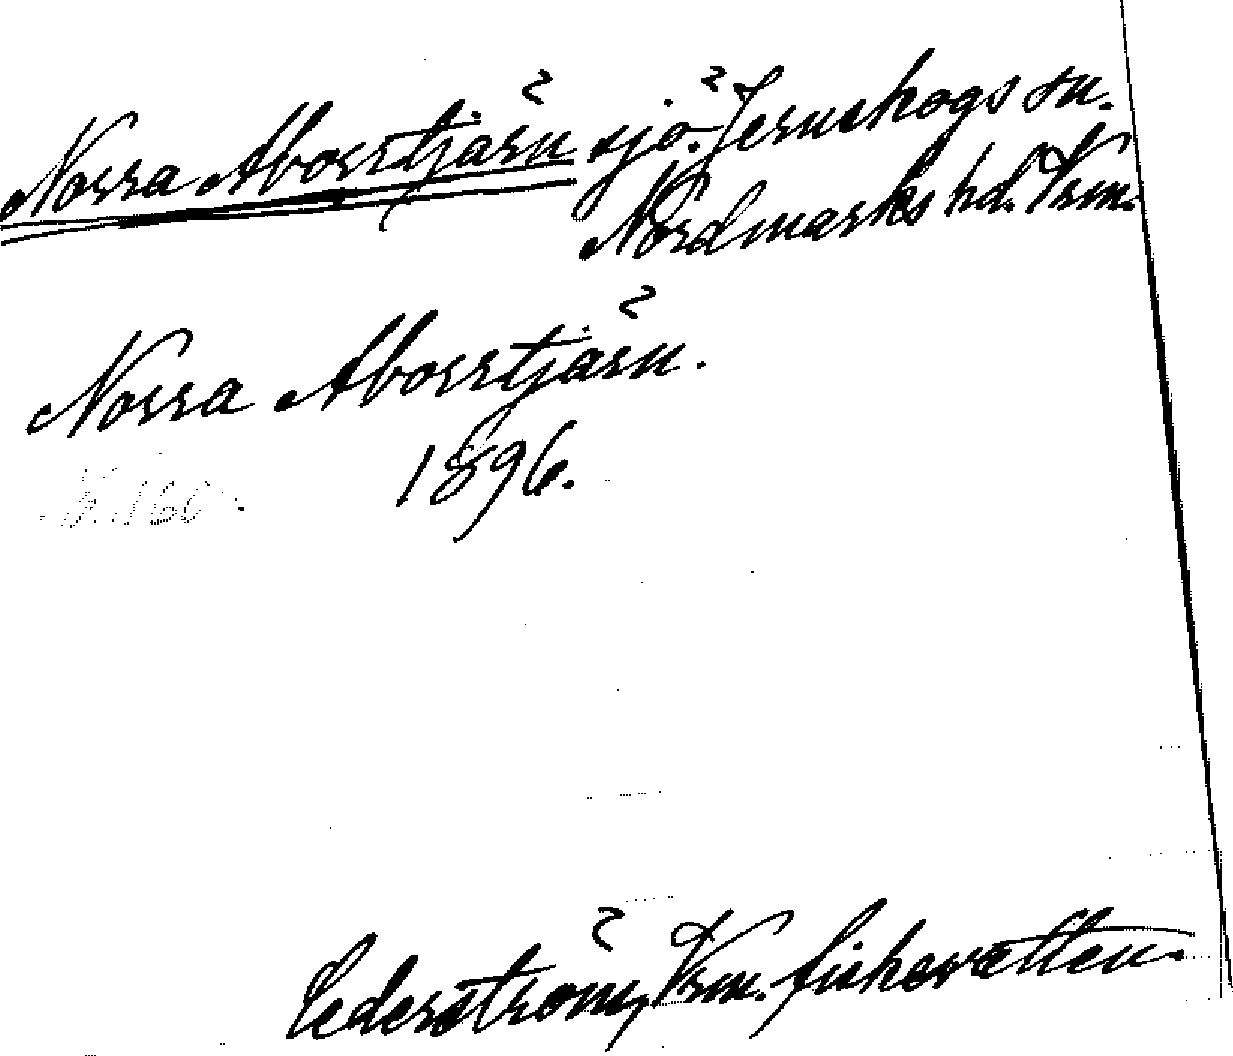 Norra Aborrtjärn sjö. Jernskogs sn.
Nordmarks hd. Vrm.
Norra Aborrtjärn.
1896.
S. 160.
Cederström, Vrm. fiskevatten.